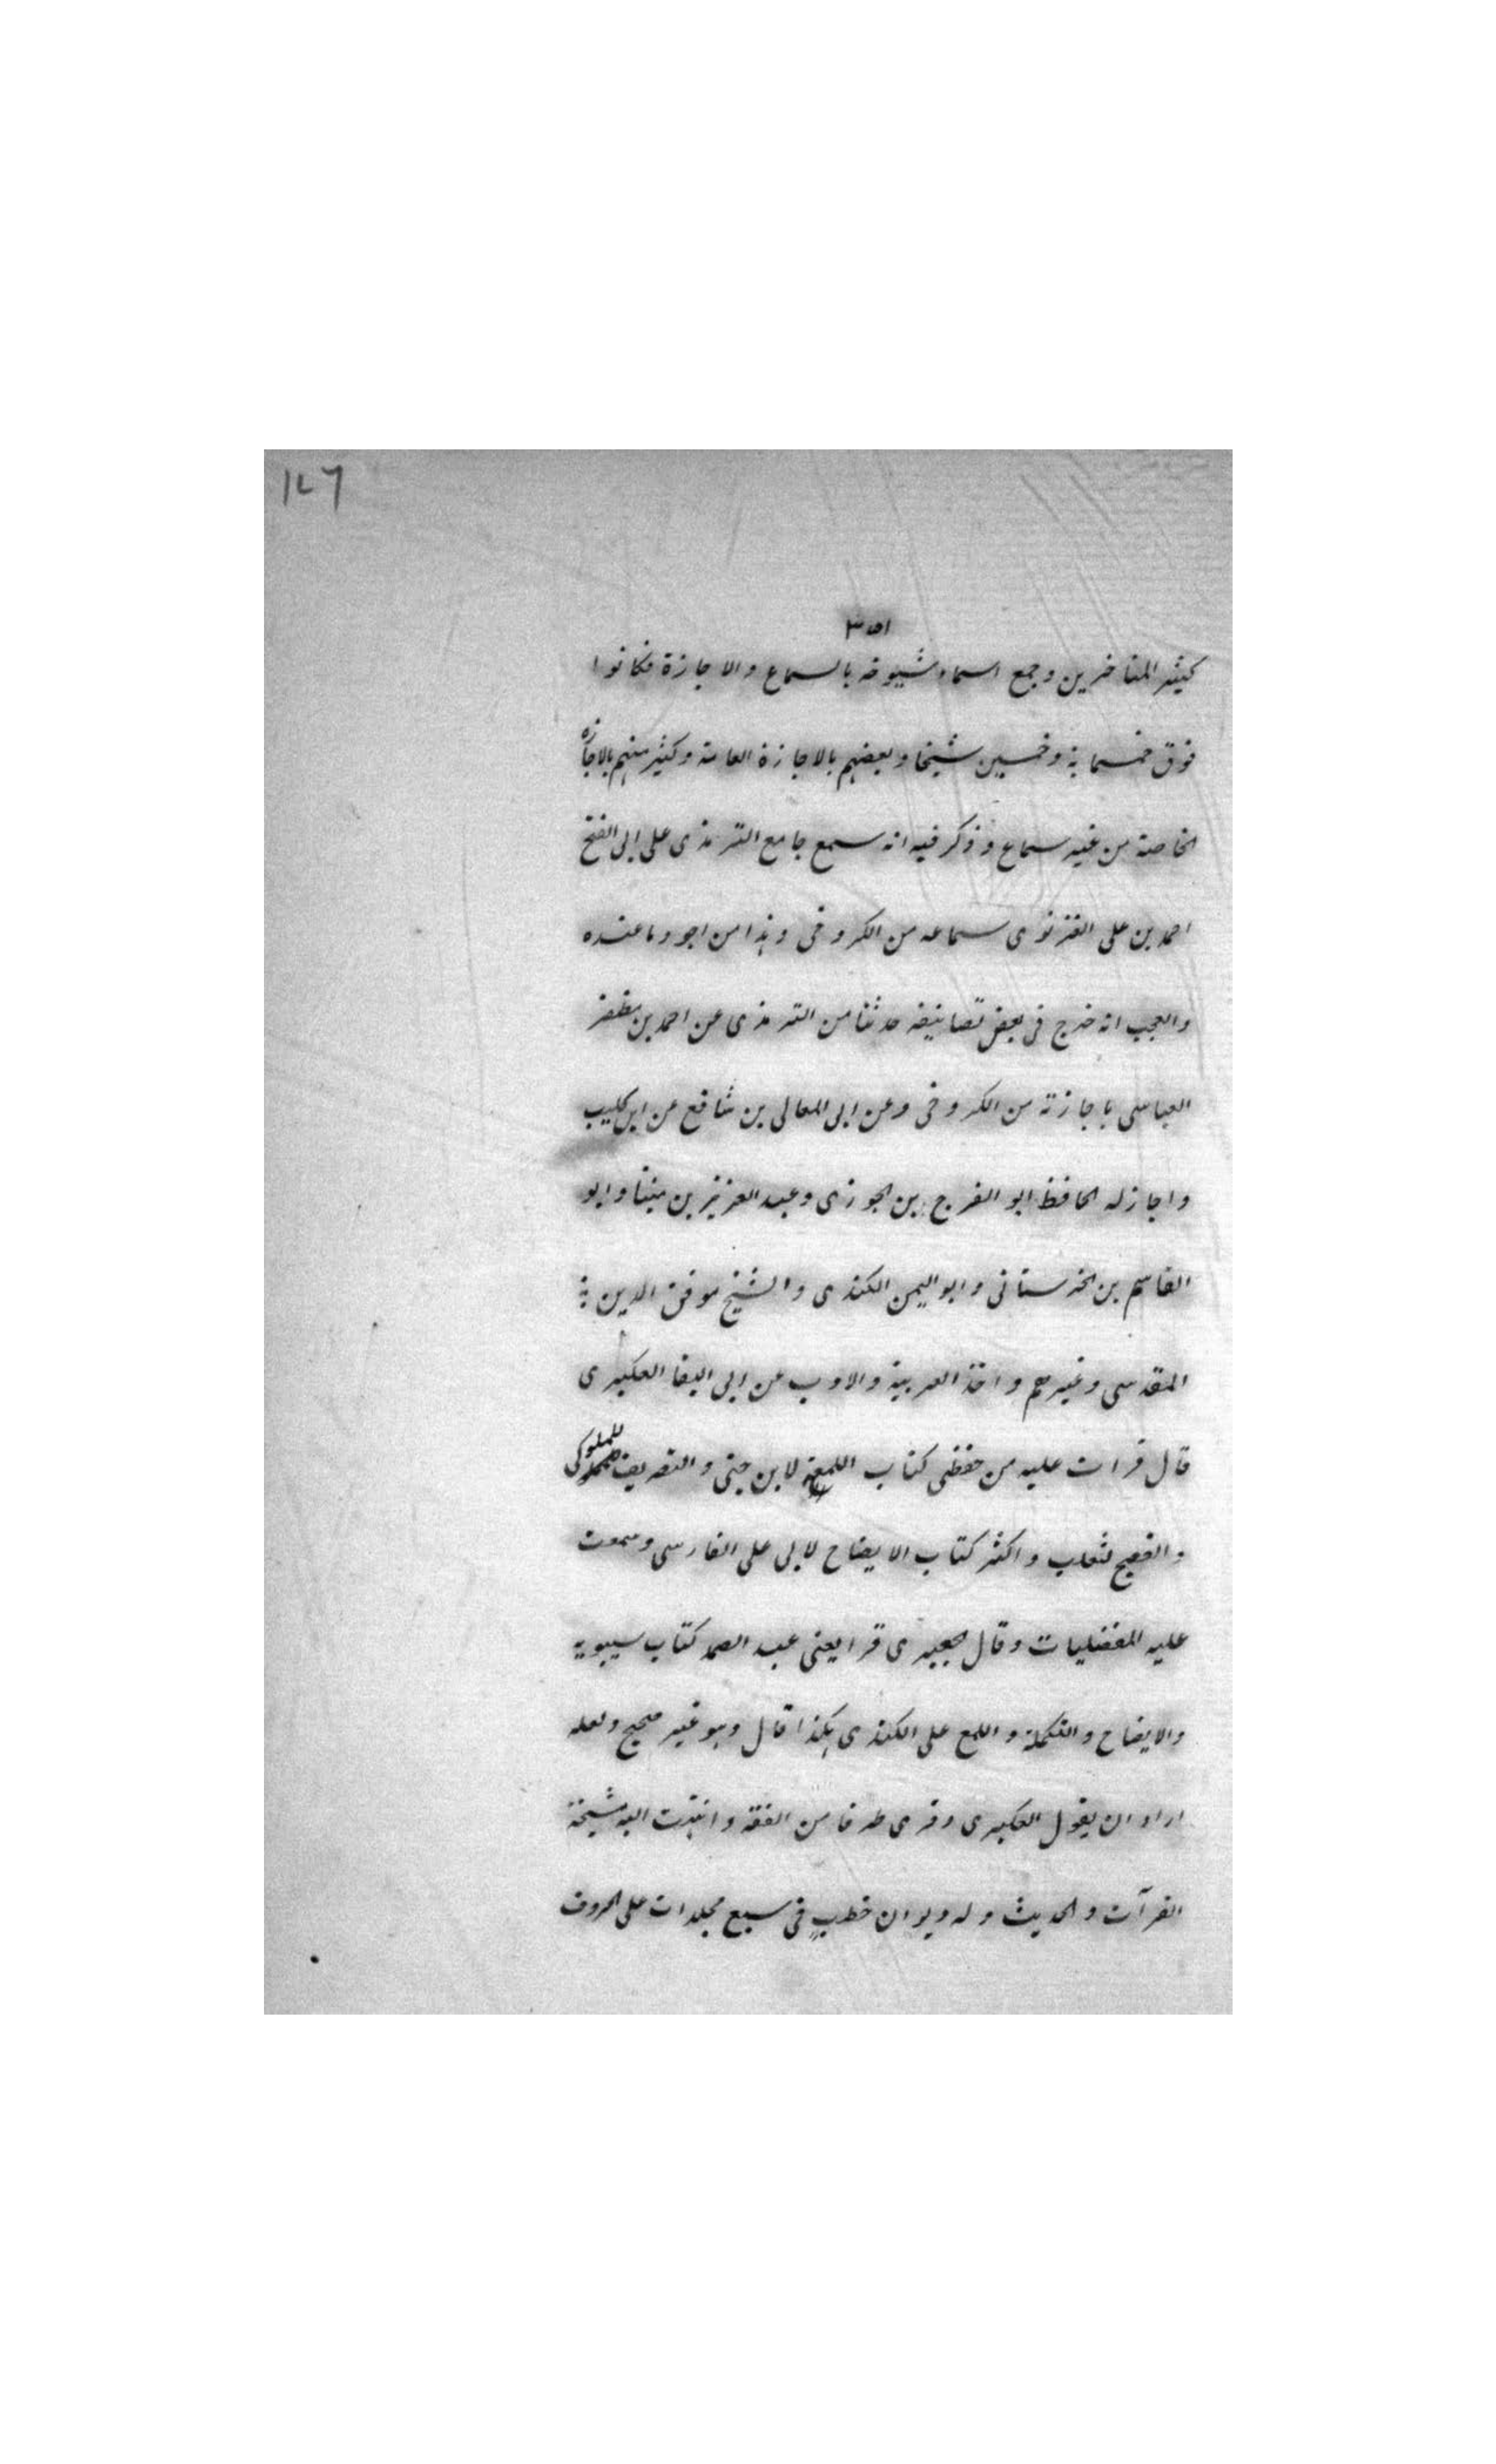 ١٤٦
٣٥١
كثير المتاخرين وجمع اسماء شيوخه بالسماع والاجازة فكانوا
فوق خمسماية وخمسين شيخا وبعضهم بالاجازة العامة وكثير منهم بالاجازة
الخاصة من غير سماع وذكر فيه انه سمع جامع الترمذى على ابى الفتح
احمد بن على الغزنوى سماعه من الكروخى وهذا من اجود ما عنده
والعجب انه خرج فى بعض تصانيفه حدثنا من الترمذى عن احمد بن مظفر
العباسى باجازته من الكروخى وعن ابى المعالى بن شافع عن ابن كليب
واجاز له الحافظ ابو الفرج بن الجوزى وعبد العزيز بن منينا وابو
القاسم بن الخرستانى وابو اليمن الكندى والشيخ موفق الدين
المقدسى وغيرهم واخذ العربية والادب عن ابى البقا العكبرى
قال قرات عليه من حفظى كتاب اللمع لابن جنى والتصريف الملوكى
والفصيح لثعلب واكثر كتاب الايضاح لابى على الفارسى وسمعت
عليه المفضليات وقال الجعبرى قرا يعنى عبد الصمد كتاب سيبويه
والايضاح والتكملة واللمع على الكندى هكذا قال وهو غير صحيح ولعله
اراد ان يقول العكبرى وقرى طرفا من الفقه وانتهت اليه مشيخة
القرآت والحديث وله ديوان خطب فى سبع مجلدات على الحروف